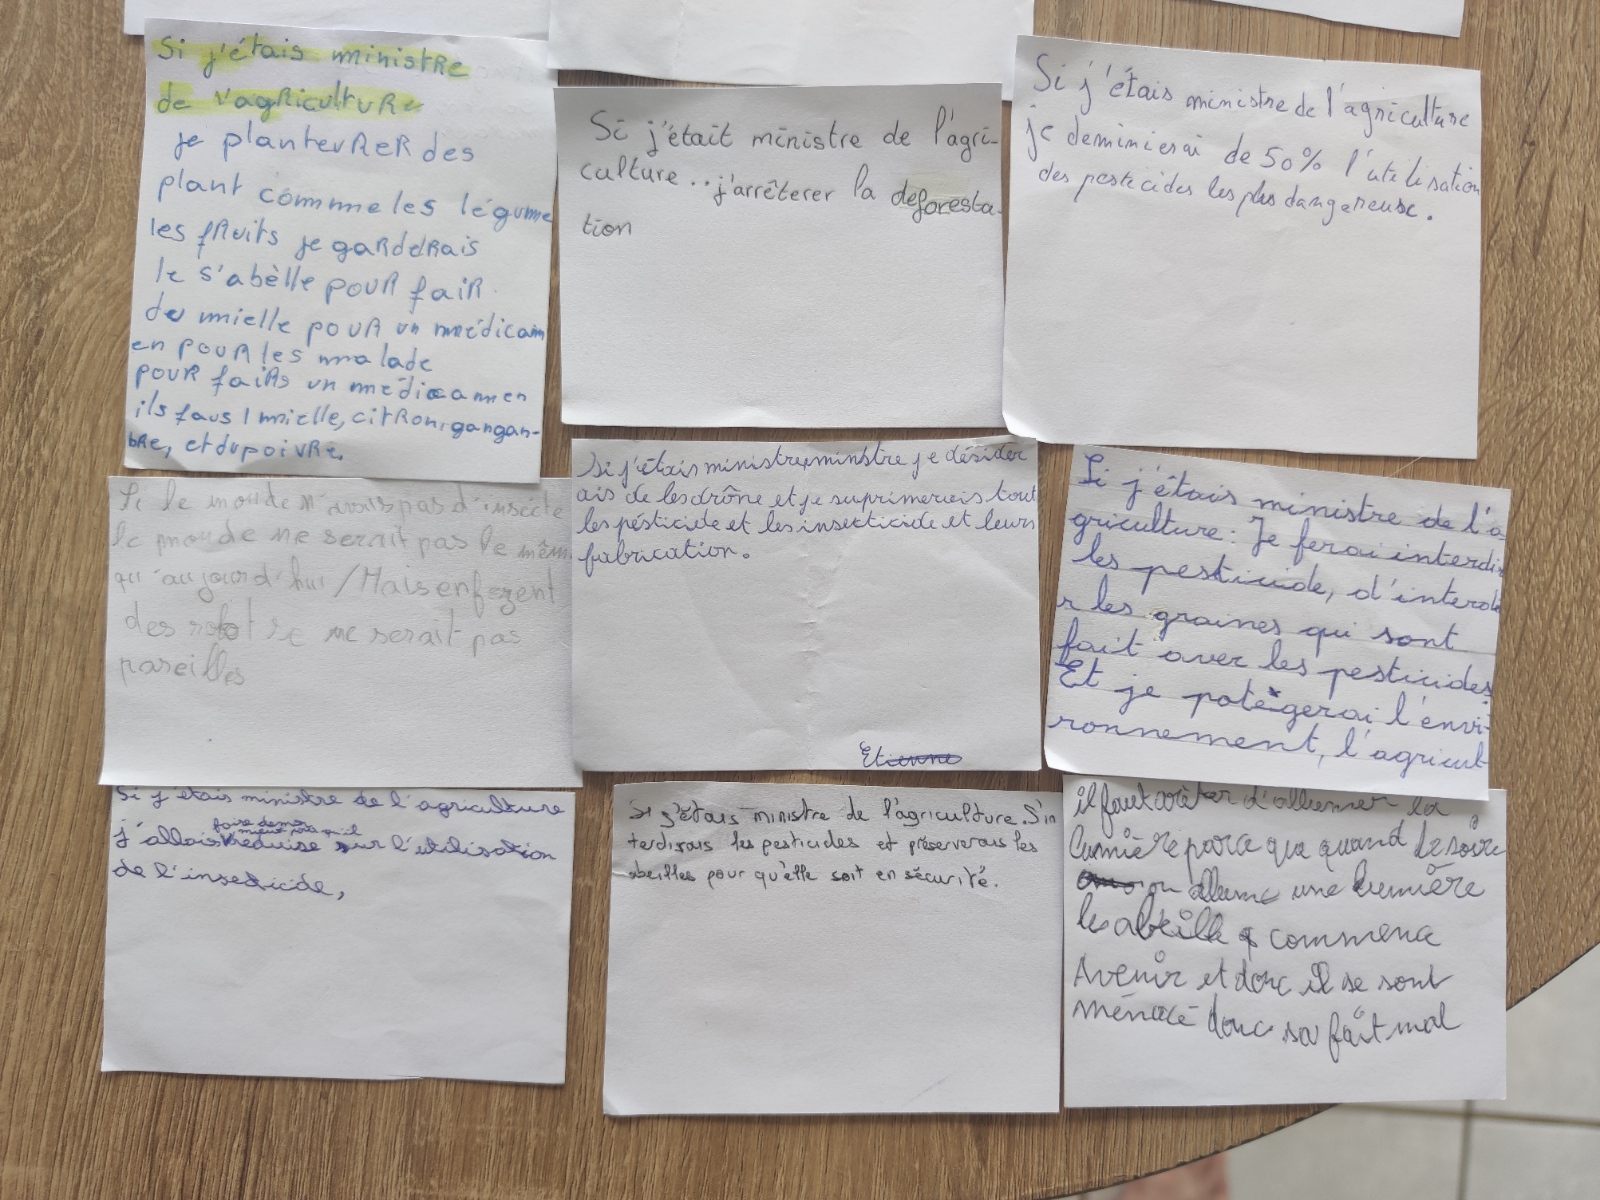 Si j'étais ministre
de l'agriculture
je planteurer des
plant commme les légume
les fruits je garderais
le s'abèlle pour fair
du mielle pour un médicam
en pour les malade
pour fairs un médicamen
ils faus 1 mielle, citron, gangan-
bre, et du poivre.
Si j'était ministre de l'agri-
culture... j'arrêterer la deforesta-
tion
Si j'étais ministre de l'agriculture
je deminierai de 50% l'utilisation
des pesticides les plus dangereuse.
Si le monde n'avais pas d'insecte
le monde ne serait pas le mêm
qu'aujourd'hui / Mais en fezent
des robot se ne serait pas
pareilles
Si j'étais ministre je désider
ais de les drône et je suprimerais tout
les pésticide et les insecticide et leurs
fabrication.
Etienne
Si j'étais ministre de l'a-
griculture: Je ferai interdir
les pesticide, d'interdi
r les graines qui sont
fait avec les pesticides
Et je potégerai l'envi-
ronnement, l'agricul
Si j'étais ministre de l'agriculture
faire de
j'allais réduise sur l'utilisation
de l'insecticide,
Si j'étais ministre de l'agriculture. J'in
terdirais les pesticides et préserverais les
abeilles pour qu'elle soit en sécurité.
il faut arèter d'allumer la
lumière parce que quand le soire
on allume une lumière
les abeille commence
Avenir et donc il se sont
ménacé donc sa fait mal